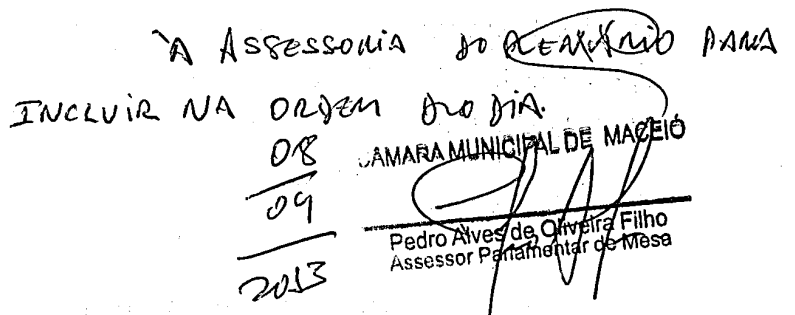 À ASSESSORIA DO PLENÁRIO PARA
INCLUIR NA ORDEM DO DIA.
08
09
2013
CÂMARA MUNICIPAL DE MACEIÓ
Pedro Alves de Oliveira Filho
Assessor Parlamentar de Mesa